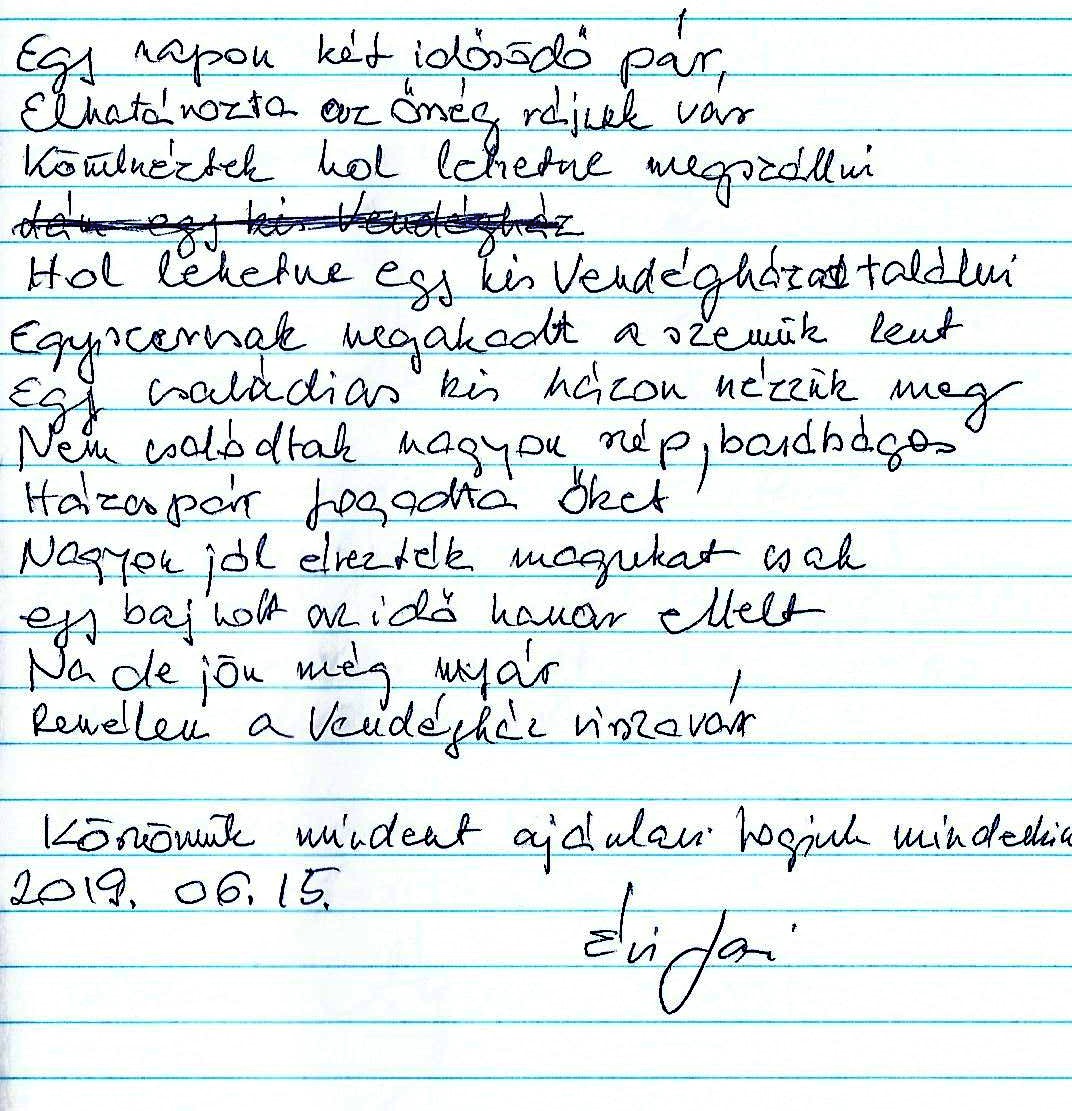 Egy napon két idősödő pár,
Elhatározta az Őrség rájuk vár
Körülnéztek hol lehetne megszállni
dán egy kis Vendégház
Hol lehetne egy kis Vendégházat találni
Egyszercsak megakadt a szemük lent
Egy családias kis házon nézzük meg
Nem csalódtak nagyon szép, barátságos
Házaspár fogadta Őket
Nagyon jól érezték magukat csak
egy baj volt az idő hamar eltelt
Na de jön még nyár
Remélem a Vendégház visszavár
Köszönünk mindent ajánlani fogjuk
2019. 06. 15.
Évi Jani